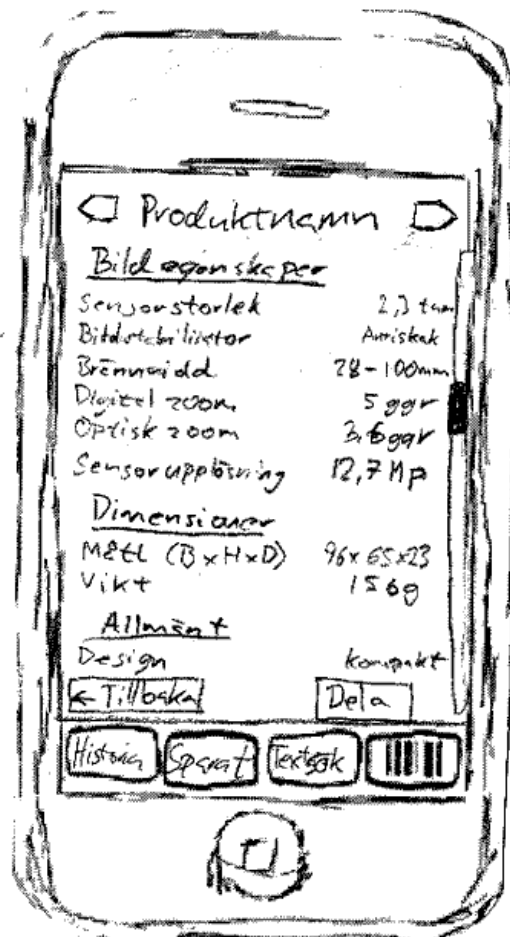 Produktnamn
Bildegenskaper
Sensorstorlek 2,3 tum
Bildstabilisator Antiskak
Brännvidd 28-100mm
Digital zoom 5 ggr
Optisk zoom 3,6 ggr
Sensorupplösning 12,7 Mp
Dimensioner
Mått (BxHxD) 96x65x23
Vikt 156g
Allmänt
Design kompakt
← Tillbaka Dela
Historia Sparat Textsök